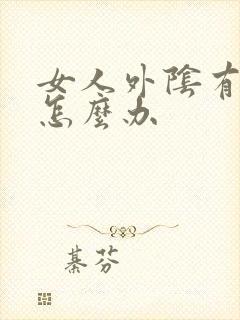 女人外陰有
怎麼办
綦芬